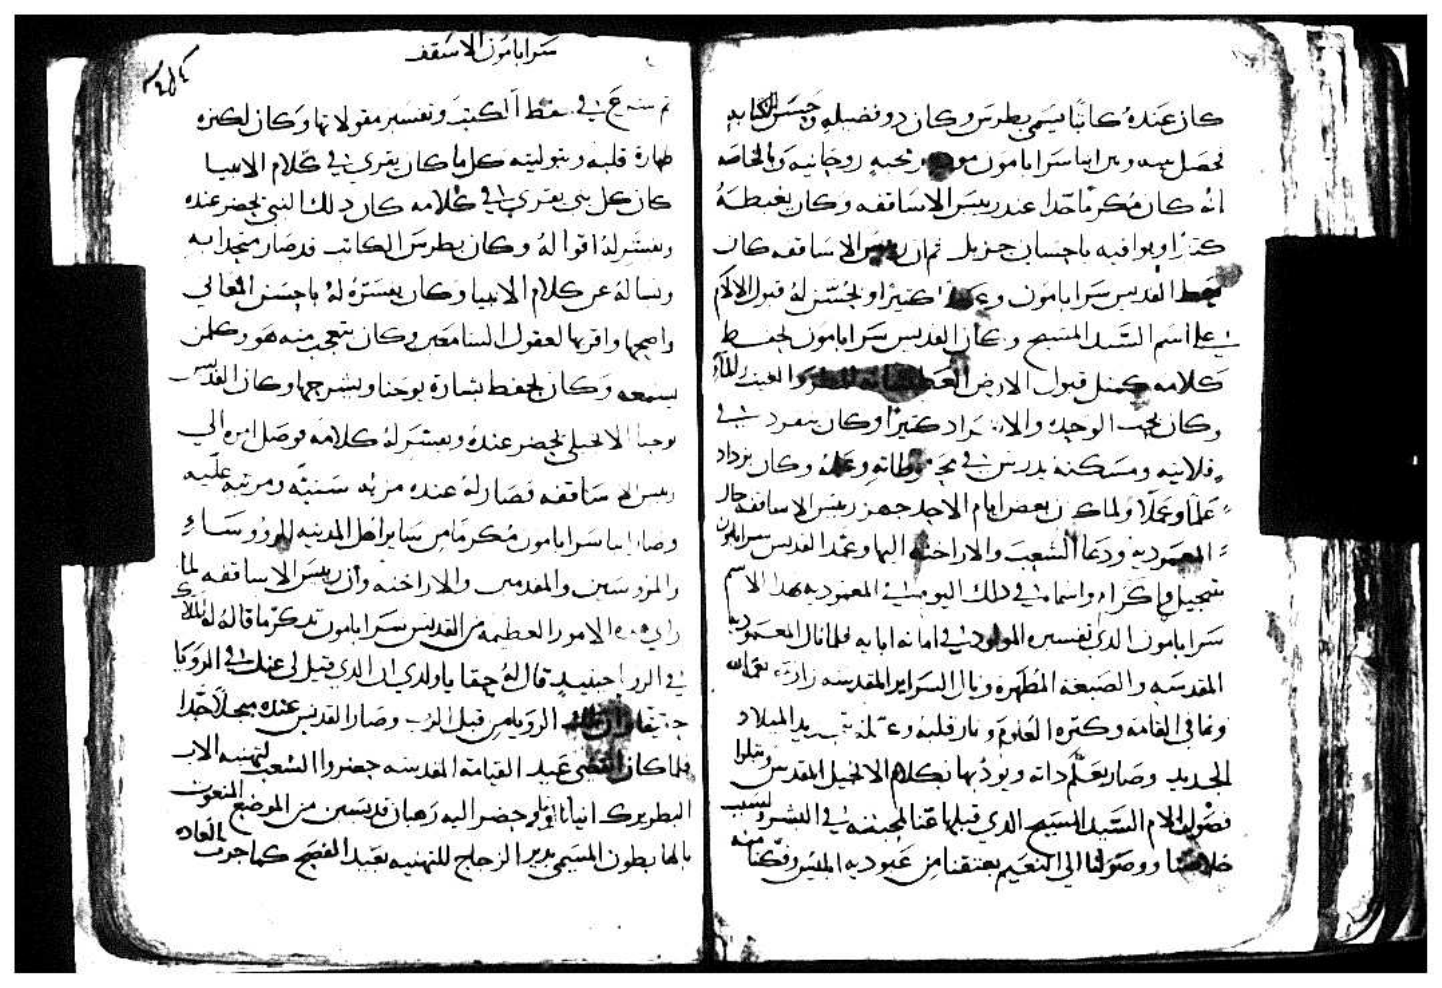 كان عنده كاتبًا يسمى بطرس وكان دو فضيله وحسن الكتابه
فحصل بينه وبين ابينا سرابامون موده ومحبه روحانيه وبالخاصه
انه كان مكرمًا جدا عند رييس الاساقفه وكان يغبطه
كتيرًا ويوافيه باحسان جزيل ثم ان رييس الاساقفه كان
يعظ القديس سرابامون كتيرًا ويحسن له قبول الالام
على اسم السيد المسيح وكان القديس سرابامون يحفظ
كلامه كمتل قبول الارض العطشانه للمطر والغيت
وكان يحب الوحده والانفراد كتيرًا وكان ينفرد في
قلايته ومسكنه يدرس في وكان يزداد
علمًا وعملًا ولما كان بعض ايام الاحد جهز رييس الاساقفه حال
المعموديه ودعا الشعب والاراخنه اليها وعمد القديس سرابامون
بتبجيل واكرام واسماه في دلك اليوم في المعموديه بهدا الاسم
سرابامون الدي تفسيره المولود في امانة ابايه فلما نال المعموديه
المقدسه والصبغه المطهره ونال السراير المقدسه زادت نعمة الله
ونما في القامه وكترة العلوم ونار قلبه
الجديد وصار يعلم داته ويودبها بكلام الانجيل المقدس ويتلوا
فصول الام السيد المسيح الدي قبلها عنا لمحبته في البشر ولسبب
خلاصنا ووصولنا الى النعيم بعتقنا من عبودية ابليس وفكنا منه
سرابامون الاسقف
في حفظ الكتب وتفسير مقولاتها وكان لكترة
طهارة قلبه وبتوليته كل ما كان يقري في كلام الانبيا
كان كل نبي يقري في كلامه كان دلك النبي يحضر عنده
ويفسر له اقواله وكان بطرس الكاتب قد صار متحدا به
ويساله عن كلام الانبيا وكان يفسره له باحسن المعاني
واصحها واقربها لعقول السامعين وكان يتعجب منه هو وكلمن
يسمعه وكان يحفظ بشارة يوحنا ويشرحها وكان القديس
يوحنا الانجيلي يحضر عنده ويفسر له كلامه فوصل امره الى
رييس الاساقفه فصار له عنده مزيد سنيه ومرتبه عليه
وصار ابينا سرابامون مكرمًا من ساير اهل المدينه الروسا
والمروسين والمقدمين والاراخنه وان رييس الاساقفه لما
راى هده الامور العظيمه من القديس سرابامون تدكر ما قاله له الملاك
في الرويا حينيد قال له حقا يا ولدي ان الدي قيل لي عنك في الرويا
حقيقا وان تلك الرويا من قبل الرب وصار القديس عنده مبجلًا جدا
فلما كان انقضى عيد القيامة المقدسه حضروا الشعب لتهنية الاب
البطريرك انبا تاونا وحضر اليه رهبان قديسين من الموضع المنعوت
بالهانطون المسمى بدير الزجاج للتهنيه بعيد الفصح كما جرت العاده